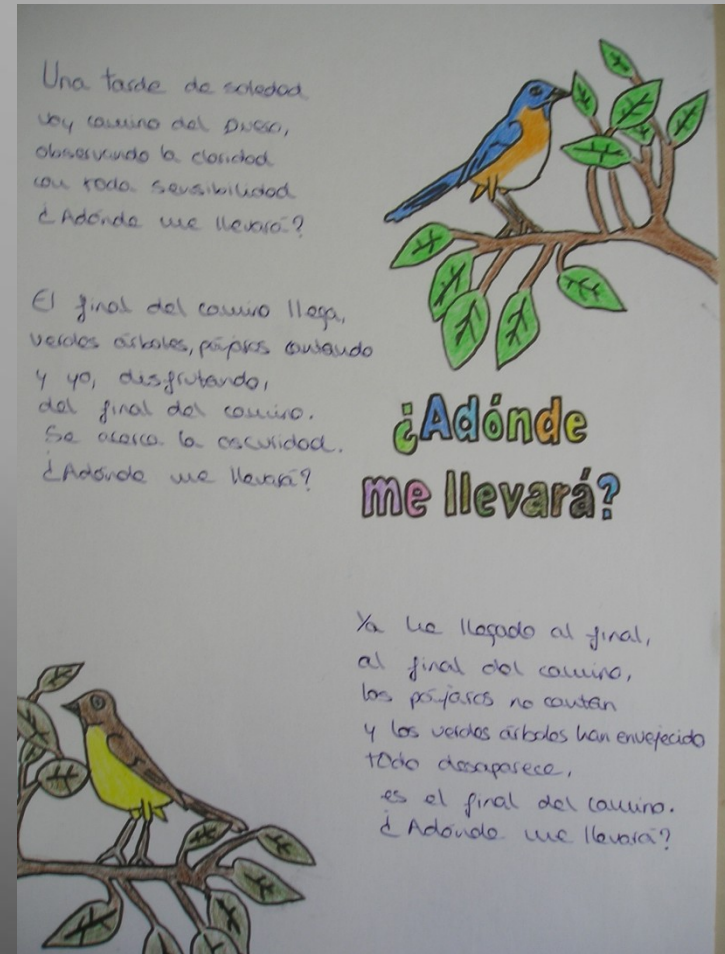 Una tarde de soledad
voy camino del Dueso,
observando la claridad
con toda sensibilidad
¿Adónde me llevará?
El final del camino llega,
verdes árboles, pájaros cantando
y yo, disfrutando,
del final del camino.
Se acerca la oscuridad.
¿Adónde me llevará?
¿Adónde
me llevará?
Ya he llegado al final,
al final del camino,
los pájaros no cantan
y los verdes árboles han envejecido
todo desaparece,
es el final del camino.
¿Adónde me llevará?